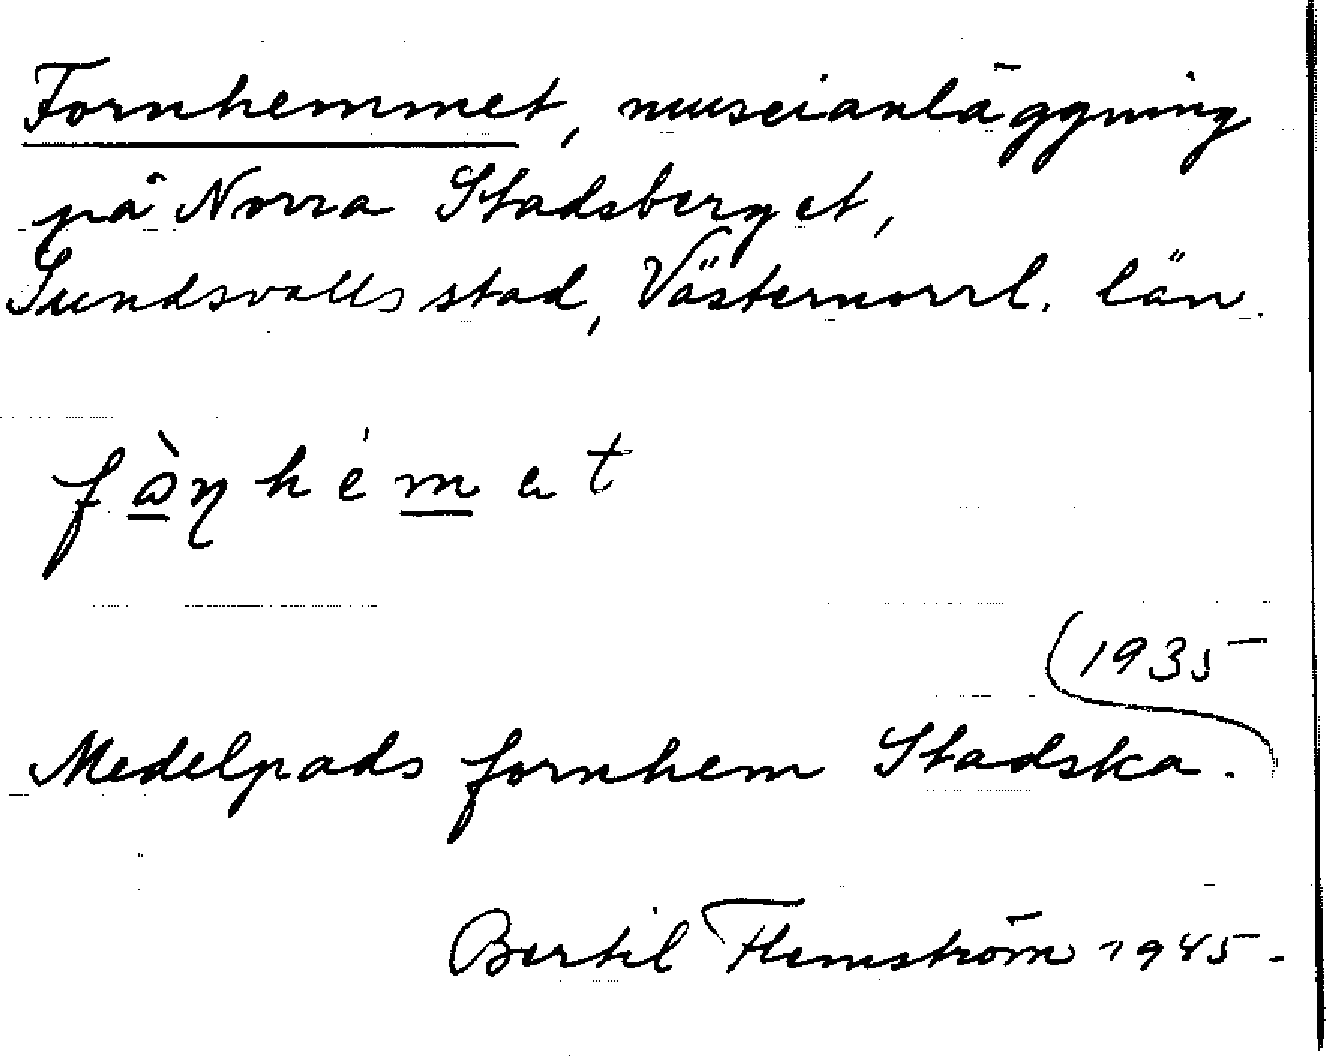 Fornhemmet, museianläggning
på Norra Stadsberget,
Sundsvalls stad, Västernorrl. län.
fòɳhémat
(1935
Medelpads fornhem Stadska.
Bertil Flemström 1945.